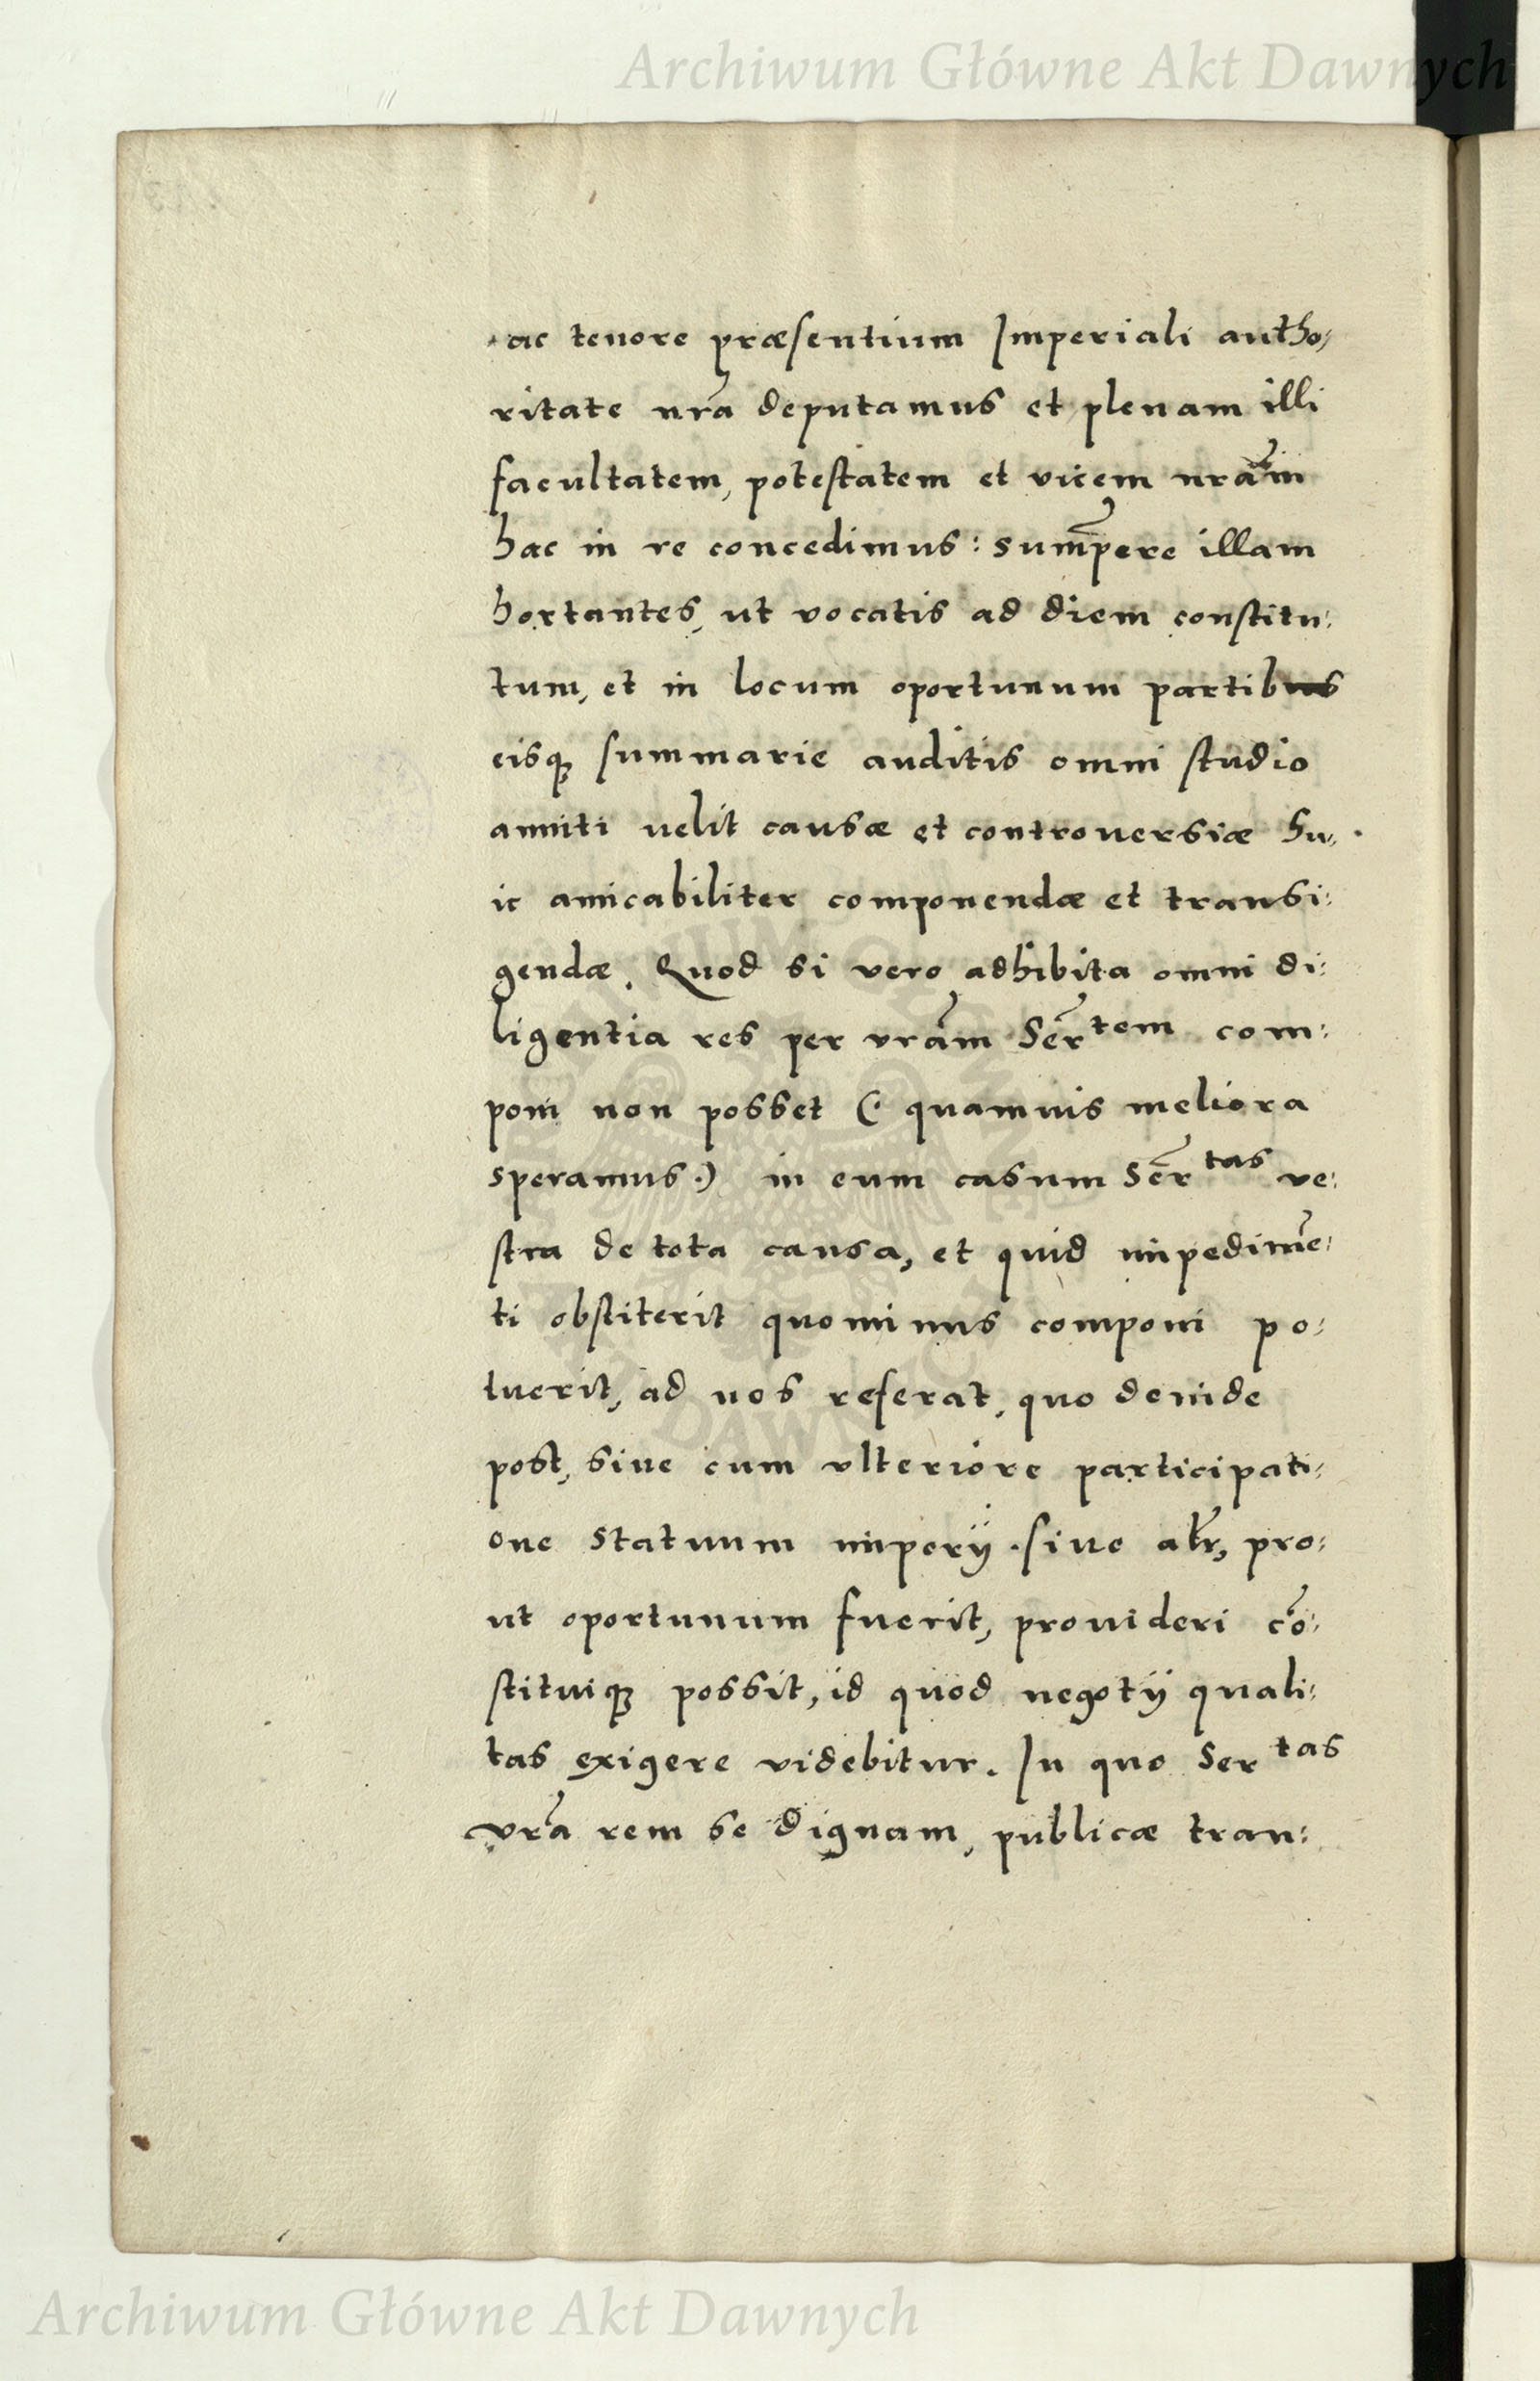 Archiwum Główne Akt Dawnych
ac tenore præsentium Imperiali autho,
ritate nr̃a deputamus et plenam illi
facultatem, potestatem et vicem nrãm
hac in re concedimus: sum̃pere illam
hortantes, ut vocatis ad diem constitu:
tum, et in locum oportunum partibus
eisq; summarie auditis omni studio
anniti uelit causæ et controuersiæ hu,
ic amicabiliter componendæ et transi:
gendæ. Quod si vero adhibita omni di:
ligentia res per vrãm Ser̃tem com:
poni non posset (. quamuis meliora
speramus.) in eum casum Ser̃tas ve:
stra de tota causa, et quid impedimẽ:
ti obstiterit quominus componi po:
tuerit, ad nos referat, quo deinde
post, siue cum vlteriore participati:
one Statuum imperij. siue altr̃, pro:
ut oportunum fuerit, prouideri cõ:
stituiq; possit, id quod negotij quali:
tas exigere videbitur. In quo Sertas
vrã rem se dignam, publicæ tran:
Archiwum Główne Akt Dawnych